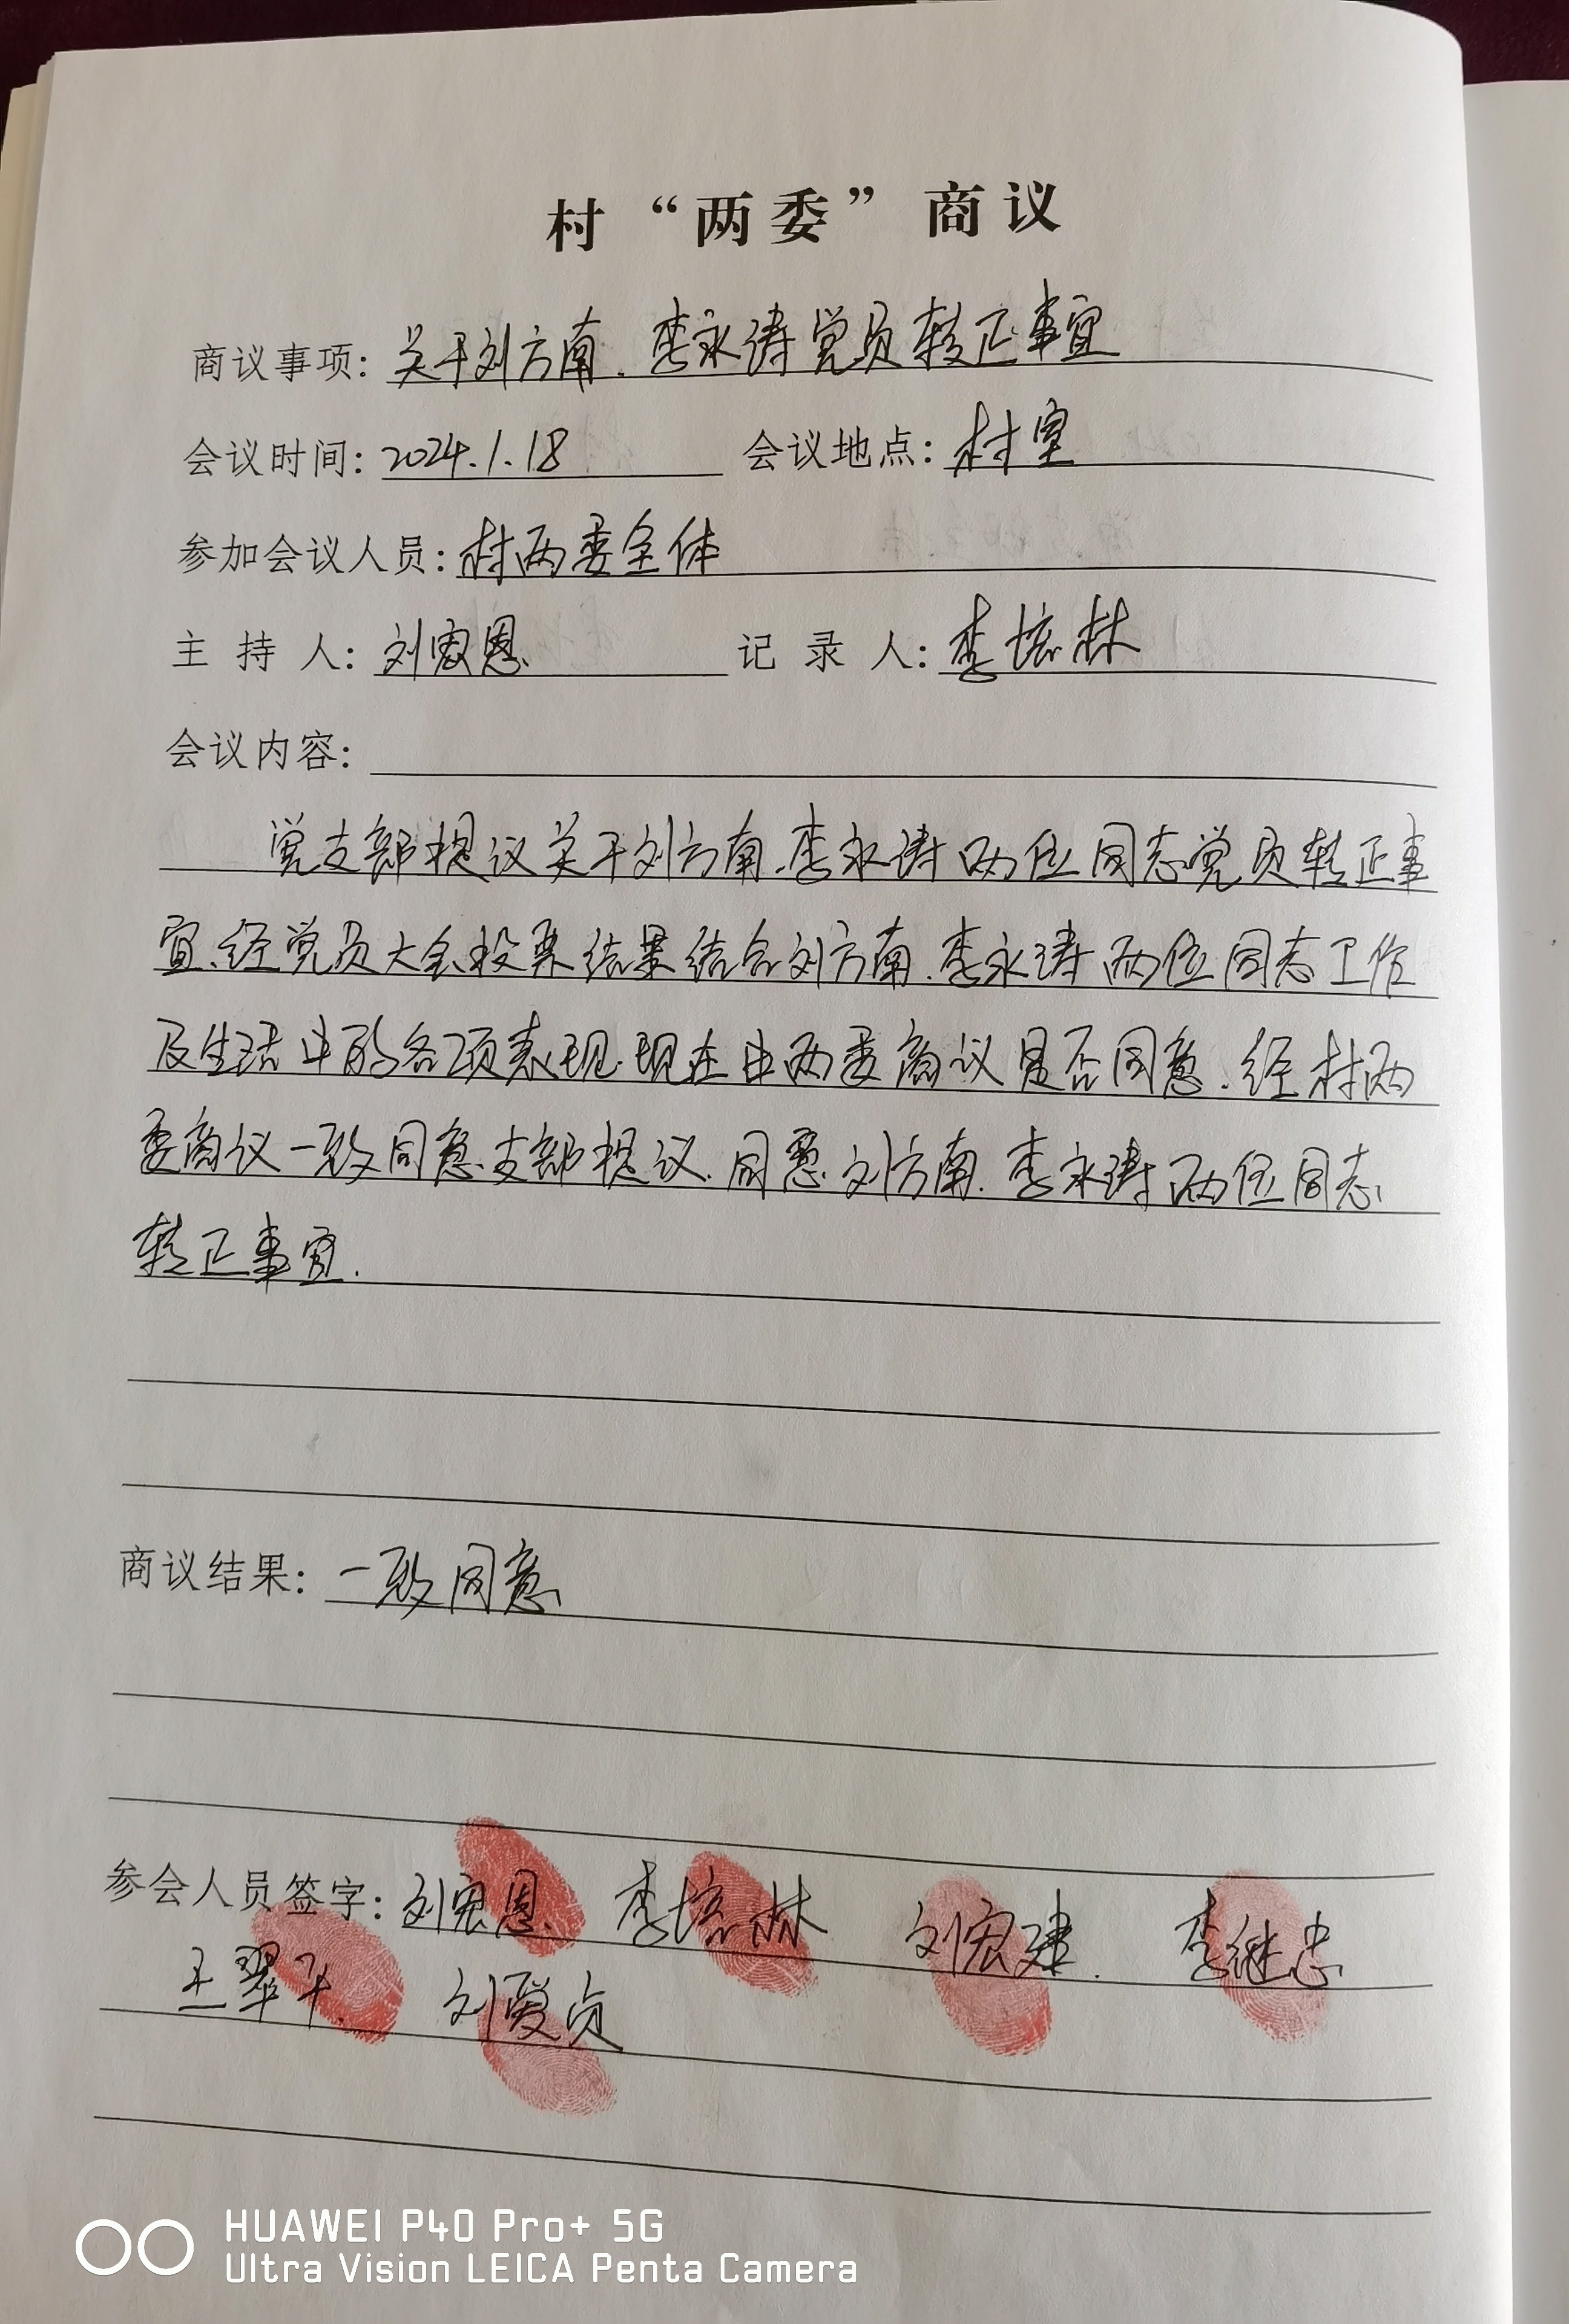 村“两委”商议
商议事项：关于刘方南、李永涛党员转正事宜
会议时间：2024.1.18 会议地点：村室
参加会议人员：村两委全体
主持人：刘宏恩 记录人：李培林
会议内容：
党支部提议关于刘方南、李永涛两位同志党员转正事
宜、经党员大会投票结果结合刘方南、李永涛两位同志工作
及生活中的各项表现、现在由两委商议是否同意、经村两
委商议一致同意支部提议、同意刘方南、李永涛两位同志
转正事宜.
商议结果：一致同意
参会人员签字：刘宏恩 李培林 刘宏建. 李继忠
王翠 刘爱贞
HUAWEI P40 Pro+ 5G
Ultra Vision LEICA Penta Camera